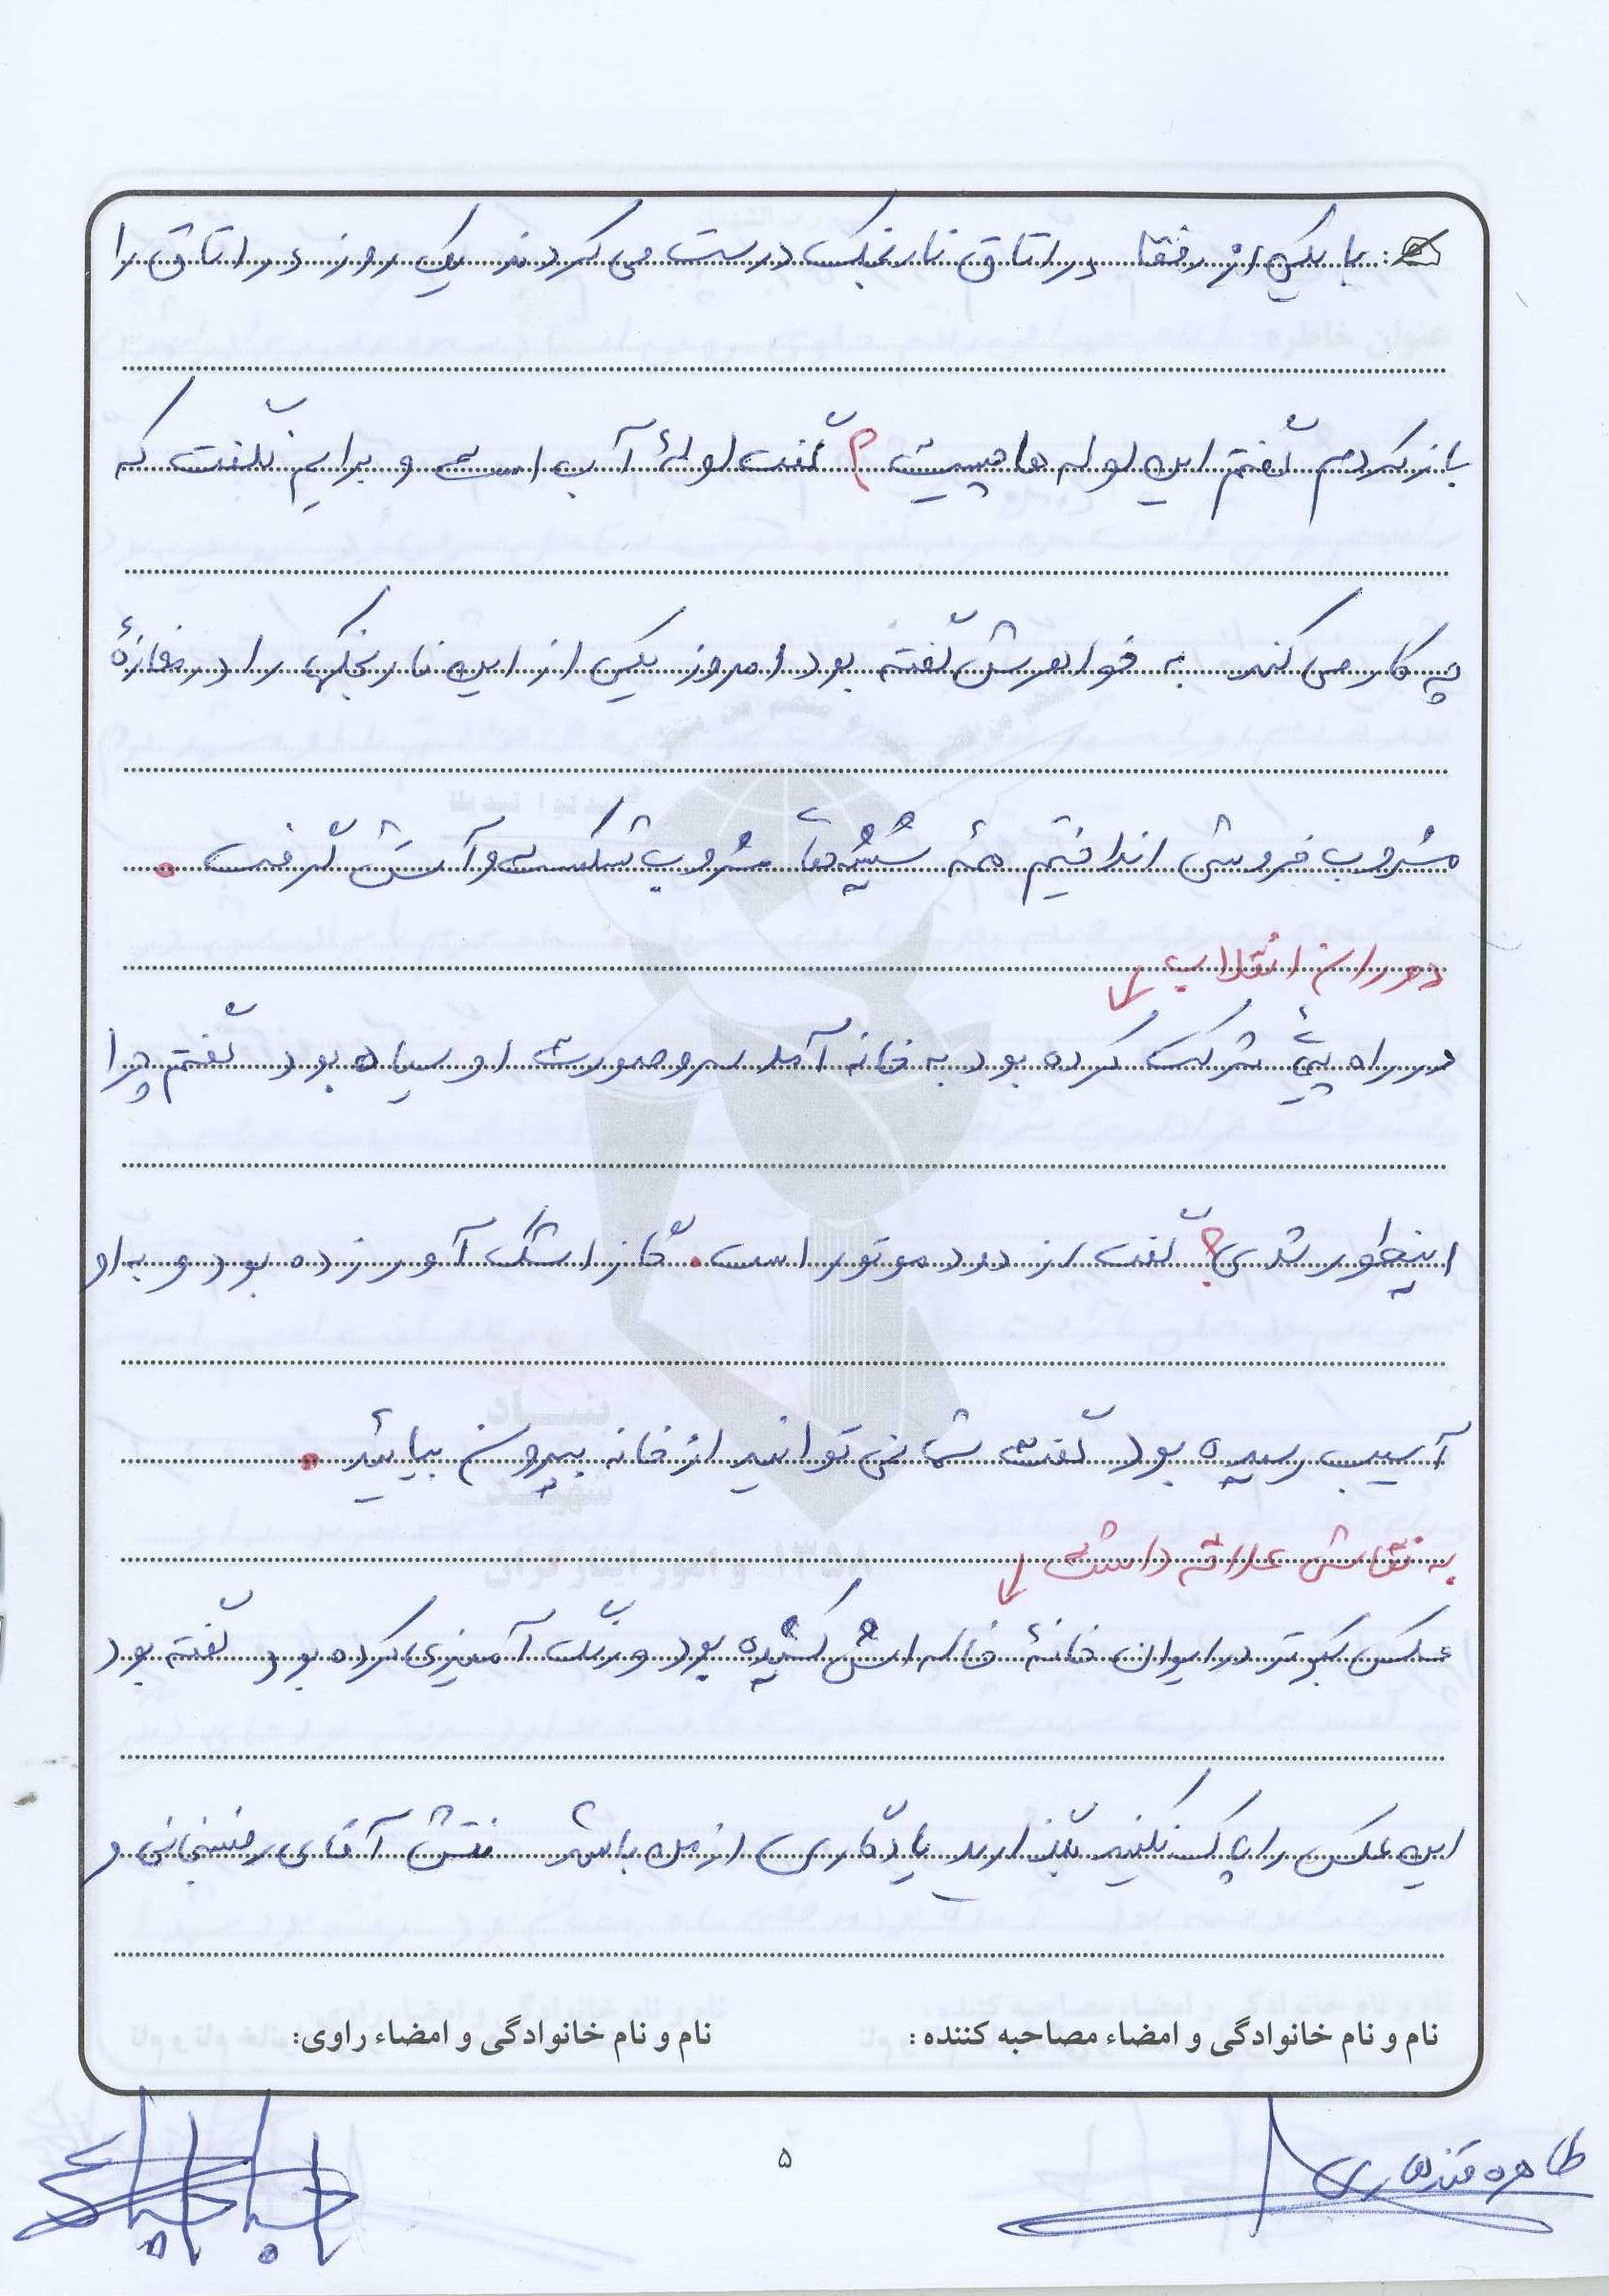 با یکی از رفقا در اتاق نارنجک درست می کردند یک روز در اتاق را
باز کردم گفتم این لوله ها چیست؟ گفت لولهٔ آب است و برایم نگفت که
چه کار می کند به خواهرش گفته بود امروز یکی از این نارنجکها را در مغازهٔ
مشروب فروشی انداختیم همهٔ شیشه های مشروب شکست و آتش گرفت.
دوران انقلاب
در راه پیمائی شرکت کرده بود به خانه آمد سر و صورت او سیاه بود گفتم چرا
اینطور شدی؟ گفت از دود موتور است. گاز اشک آور زده بود و به او
آسیب رسیده بود گفت شما نمی توانید از خانه بیرون بیائید.
به نقاشی علاقه داشت
عکس کبوتر در ایوان خانهٔ خاله اش کشیده بود و رنگ آمیزی کرده بود گفته بود
این عکس را پاک نکنید بگذارید یادگاری از من باشد نقش آقای رفسنجانی و
نام و نام خانوادگی و امضاء مصاحبه کننده: نام و نام خانوادگی و امضاء راوی:
طاهره قندهاری
۵